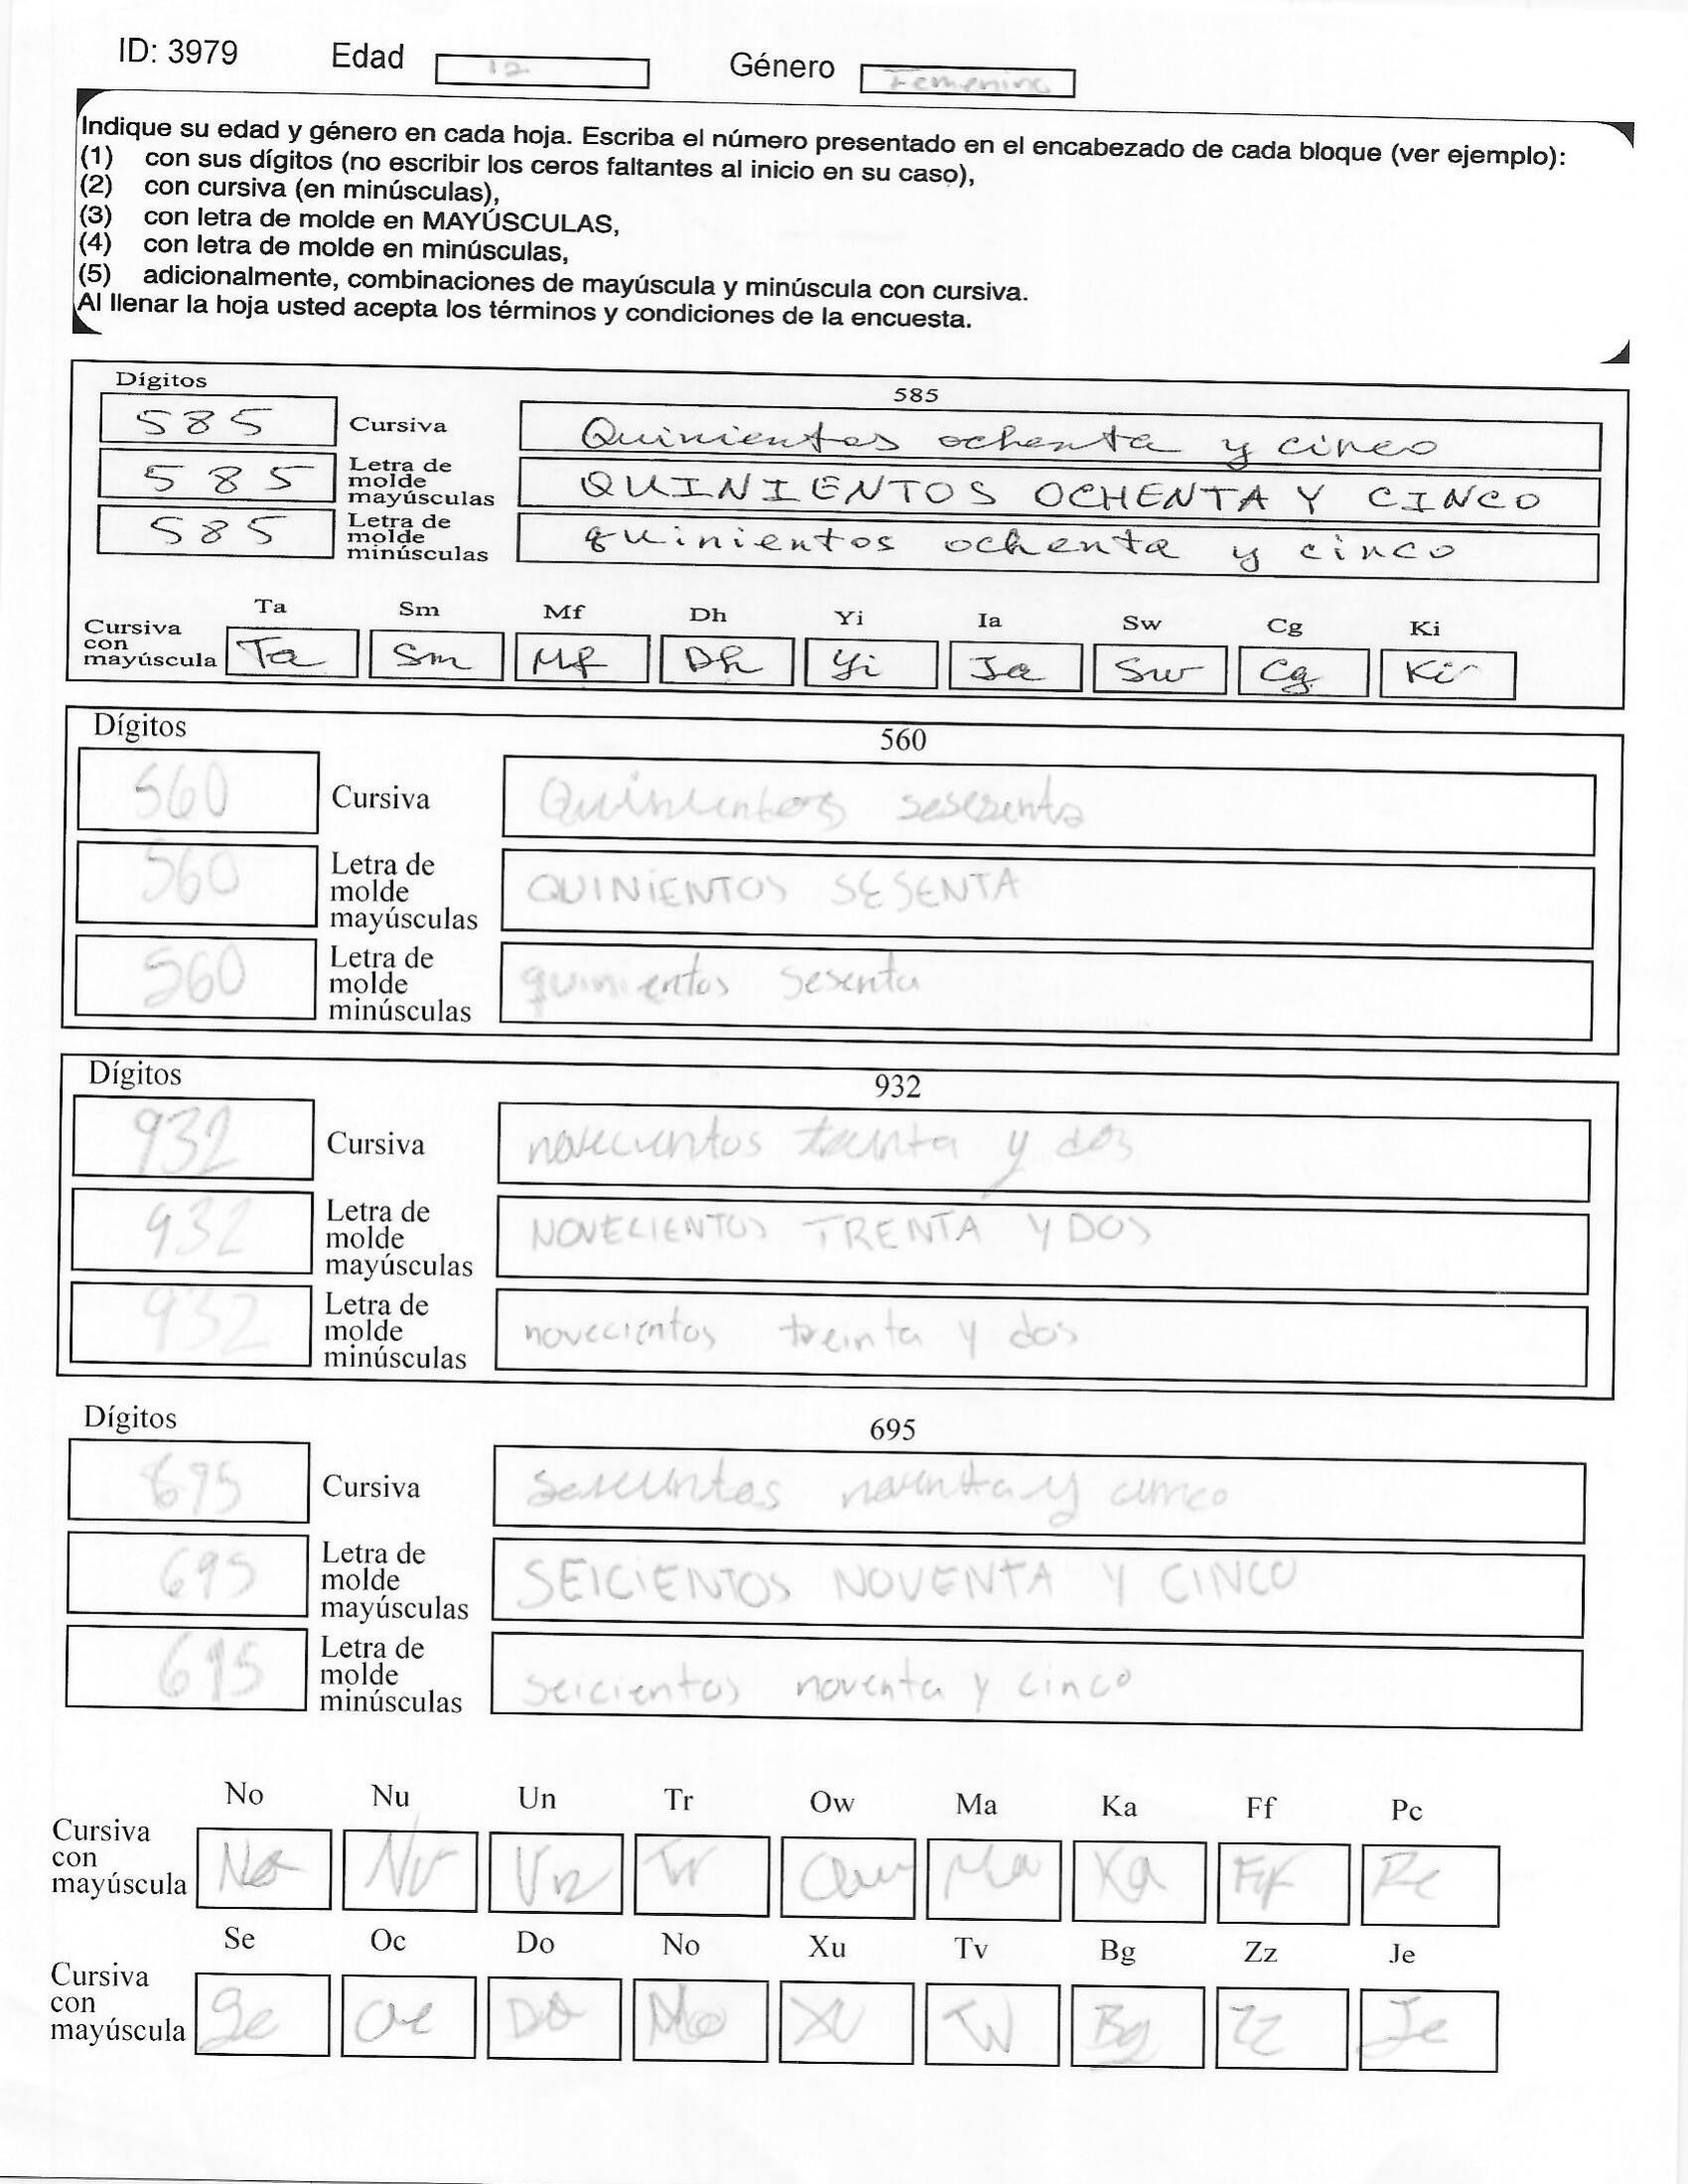 ID: 3979 Edad 12 Género Femenino
Indique su edad y género en cada hoja. Escriba el número presentado en el encabezado de cada bloque (ver ejemplo):
(1) con sus dígitos (no escribir los ceros faltantes al inicio en su caso),
(2) con cursiva (en minúsculas),
(3) con letra de molde en MAYÚSCULAS,
(4) con letra de molde en minúsculas,
(5) adicionalmente, combinaciones de mayúscula y minúscula con cursiva.
Al llenar la hoja usted acepta los términos y condiciones de la encuesta.
Dígitos 585
585 Cursiva Quinientos ochenta y cinco
585 Letra de molde mayúsculas QUINIENTOS OCHENTA Y CINCO
585 Letra de molde minúsculas quinientos ochenta y cinco
Ta Sm Mf Dh Yi Ia Sw Cg Ki
Cursiva con mayúscula Ta Sm Mf Dh Yi Ia Sw Cg Ki
Dígitos 560
560 Cursiva Quinientos
560 Letra de molde mayúsculas QUINIENTOS SESENTA
560 Letra de molde minúsculas quinientos sesenta
Dígitos 932
932 Cursiva novecientos treinta y dos
932 Letra de molde mayúsculas NOVECIENTOS TRENTA Y DOS
932 Letra de molde minúsculas novecientos treinta y dos
Dígitos 695
695 Cursiva noventa y cinco
695 Letra de molde mayúsculas SEICIENTOS NOVENTA Y CINCO
695 Letra de molde minúsculas seicientos noventa y cinco
No Nu Un Tr Ow Ma Ka Ff Pc
Cursiva con mayúscula No Nu Un Tr Ow Ma Ka Ff Pc
Se Oc Do No Xu Tv Bg Zz Je
Cursiva con mayúscula Se Oc Do No Xu Tv Bg Zz Je